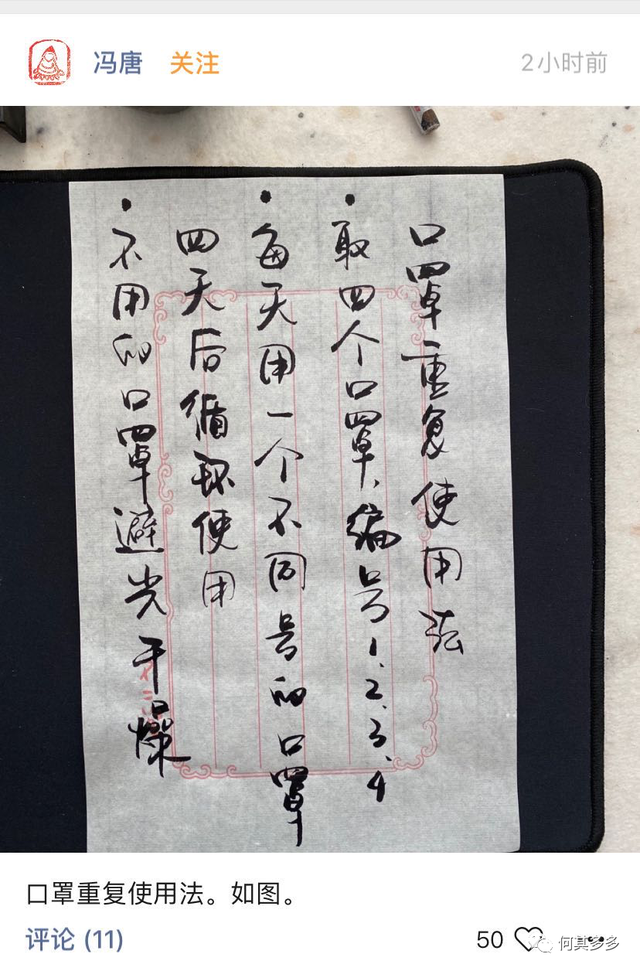 冯唐 关注 2小时前
口罩重复使用法
•取四个口罩,编号1.2.3.4
•每天用一个不同号的口罩
四天后循环使用
•不用的口罩避光干燥
口罩重复使用法。如图。
评论 (11) 50
何其多多